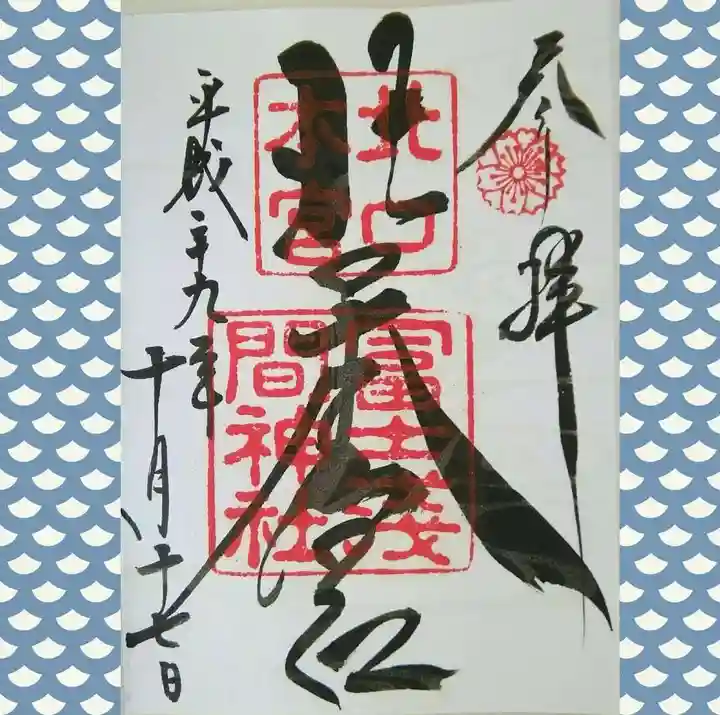 奉拝
北口本宮
北口
本宮
富士浅
間神社
平成二十九年十月十七日